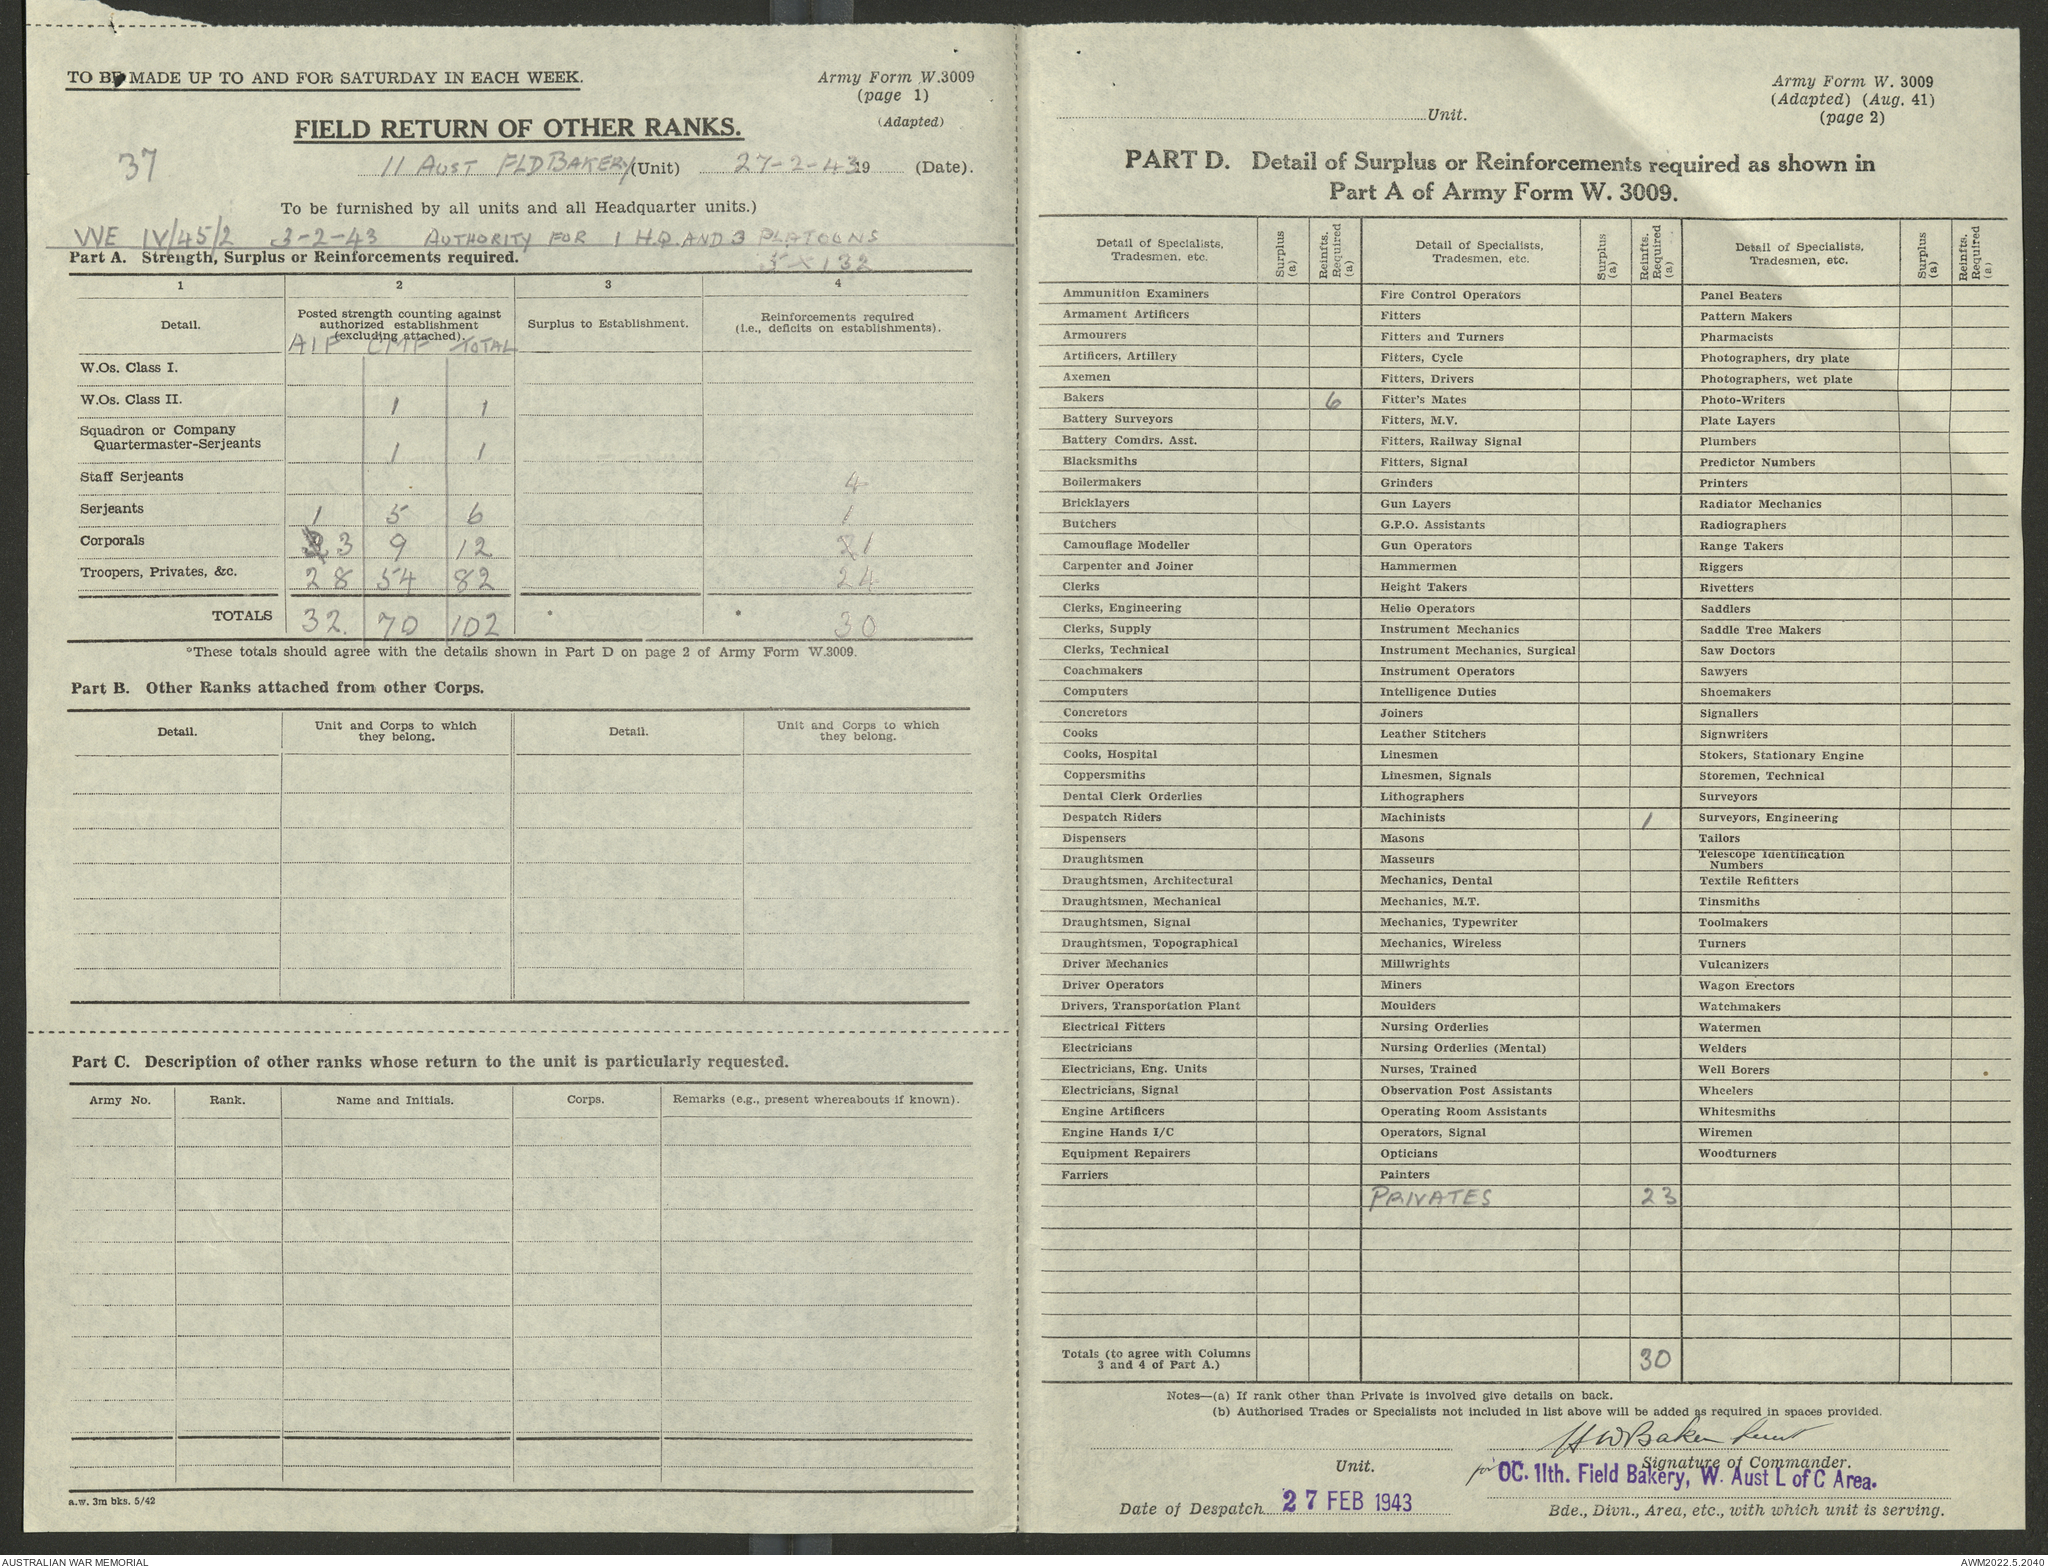 TO BE MADE UP TO AND FOR SATURDAY IN EACH WEEK.
Army Form W.3009
(page 1)
(Adapted)
FIELD RETURN OF OTHER RANKS.
37
11 AUST FLD BAKERY (Unit) 27-2-43 19 (Date).
To be furnished by all units and all Headquarter units.)
VVE IV/45/2 3-2-43 AUTHORITY FOR 1 H.Q AND 3 PLATOONS
Part A. Strength, Surplus or Reinforcements required.
5 x 132
1 2 3 4
Detail. Posted strength counting against authorized establishment (excluding attached). Surplus to Establishment. Reinforcements required (i.e., deficits on establishments).
AIF CMF TOTAL
W.Os. Class I.
W.Os. Class II. 1 1
Squadron or Company
Quartermaster-Serjeants 1 1
Staff Serjeants 4
Serjeants 1 5 6 1
Corporals 3 9 12 1
Troopers, Privates, &c. 28 54 82 24
TOTALS 32. 70 102 * * 30
*These totals should agree with the details shown in Part D on page 2 of Army Form W.3009.
Part B. Other Ranks attached from other Corps.
Detail. Unit and Corps to which they belong. Detail. Unit and Corps to which they belong.
Part C. Description of other ranks whose return to the unit is particularly requested.
Army No. Rank. Name and Initials. Corps. Remarks (e.g., present whereabouts if known).
a.w. 3m bks. 5/42
Army Form W. 3009
(Adapted) (Aug. 41)
(page 2)
Unit.
PART D. Detail of Surplus or Reinforcements required as shown in
Part A of Army Form W. 3009.
Detail of Specialists, Tradesmen, etc. Surplus (a) Reinfts. Required (a) Detail of Specialists, Tradesmen, etc. Surplus (a) Reinfts. Required (a) Detail of Specialists, Tradesmen, etc. Surplus (a) Reinfts. Required (a)
Ammunition Examiners Fire Control Operators Panel Beaters
Armament Artificers Fitters Pattern Makers
Armourers Fitters and Turners Pharmacists
Artificers, Artillery Fitters, Cycle Photographers, dry plate
Axemen Fitters, Drivers Photographers, wet plate
Bakers 6 Fitter's Mates Photo-Writers
Battery Surveyors Fitters, M.V. Plate Layers
Battery Comdrs. Asst. Fitters, Railway Signal Plumbers
Blacksmiths Fitters, Signal Predictor Numbers
Boilermakers Grinders Printers
Bricklayers Gun Layers Radiator Mechanics
Butchers G.P.O. Assistants Radiographers
Camouflage Modeller Gun Operators Range Takers
Carpenter and Joiner Hammermen Riggers
Clerks Height Takers Rivetters
Clerks, Engineering Helio Operators Saddlers
Clerks, Supply Instrument Mechanics Saddle Tree Makers
Clerks, Technical Instrument Mechanics, Surgical Saw Doctors
Coachmakers Instrument Operators Sawyers
Computers Intelligence Duties Shoemakers
Concretors Joiners Signallers
Cooks Leather Stitchers Signwriters
Cooks, Hospital Linesmen Stokers, Stationary Engine
Coppersmiths Linesmen, Signals Storemen, Technical
Dental Clerk Orderlies Lithographers Surveyors
Despatch Riders Machinists 1 Surveyors, Engineering
Dispensers Masons Tailors
Draughtsmen Masseurs Telescope Identification Numbers
Draughtsmen, Architectural Mechanics, Dental Textile Refitters
Draughtsmen, Mechanical Mechanics, M.T. Tinsmiths
Draughtsmen, Signal Mechanics, Typewriter Toolmakers
Draughtsmen, Topographical Mechanics, Wireless Turners
Driver Mechanics Millwrights Vulcanizers
Driver Operators Miners Wagon Erectors
Drivers, Transportation Plant Moulders Watchmakers
Electrical Fitters Nursing Orderlies Watermen
Electricians Nursing Orderlies (Mental) Welders
Electricians, Eng. Units Nurses, Trained Well Borers
Electricians, Signal Observation Post Assistants Wheelers
Engine Artificers Operating Room Assistants Whitesmiths
Engine Hands I/C Operators, Signal Wiremen
Equipment Repairers Opticians Woodturners
Farriers Painters
PRIVATES 23
Totals (to agree with Columns
3 and 4 of Part A.) 30
Notes—(a) If rank other than Private is involved give details on back.
(b) Authorised Trades or Specialists not included in list above will be added as required in spaces provided.
HW Baker Lieut
Unit. Signature of Commander.
for OC. 11th. Field Bakery, W. Aust L of C Area.
Date of Despatch 27 FEB 1943 Bde., Divn., Area, etc., with which unit is serving.
AUSTRALIAN WAR MEMORIAL AWM2022.5.2040